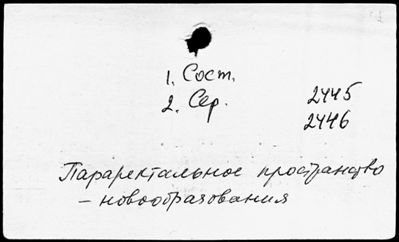 1. Сост.
2. Сер.
2445
2446
Параректальное пространство
– новообразования